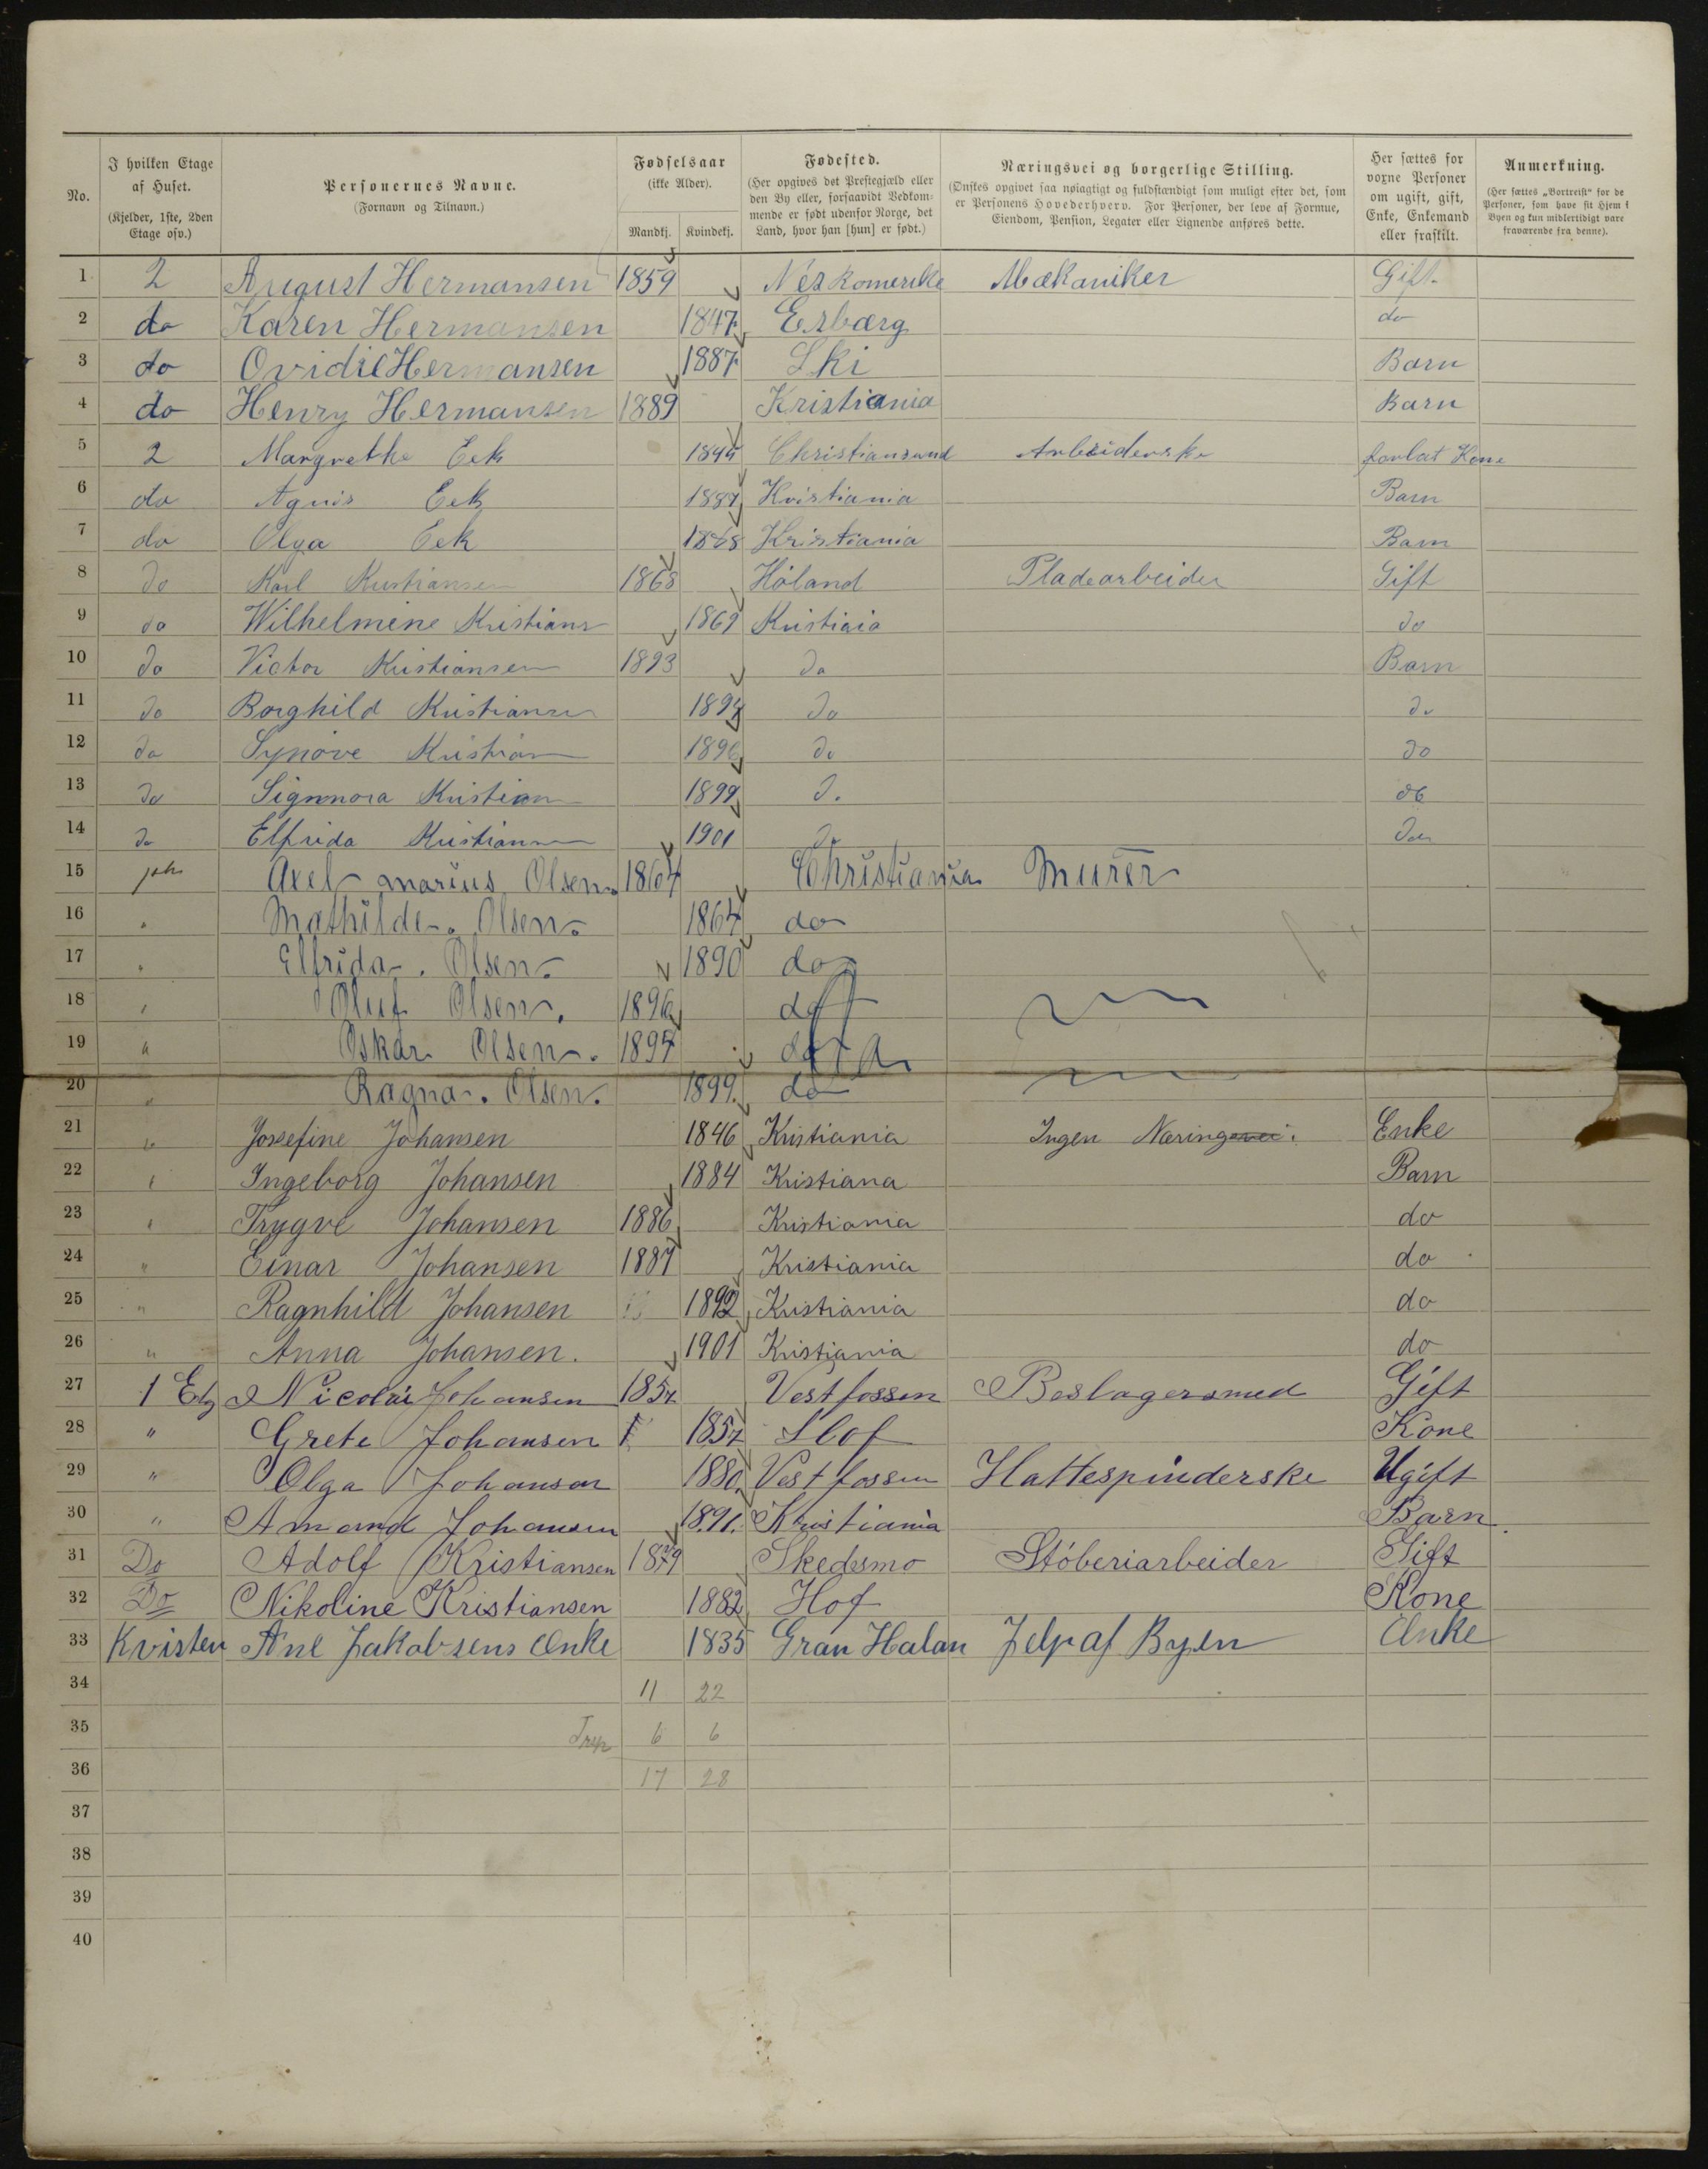 No. I hvilken Etage af Huset. (Kjelder, 1ste, 2den Etage osv.) Personernes Navne. (Fornavn og Tilnavn.) Fødselsaar (ikke Alder). Mandkj. Kvindekj. Fødested. (Her opgives det Prestegjæld eller den By eller, forsaavidt Vedkommende er født udenfor Norge, det Land, hvor han [hun] er født.) Næringsvei og borgerlige Stilling. (Ønskes opgivet saa nøiagtigt og fuldstændigt som muligt efter det, som er Personens Hovederhverv. For Personer, der leve af Formue, Eiendom, Pension, Legater eller Lignende anføres dette.) Her sættes for voxne Personer om ugift, gift, Enke, Enkemand eller fraskilt. Anmerkning. (Her sættes „Bortreist“ for de Personer, som have sit Hjem i Byen og kun midlertidigt vare fraværende fra denne).
1 2 August Hermansen 1859 Nes Romerike Mekaniker Gift.
2 do Karen Hermansen 1847 Esbærg do
3 do Ovidie Hermansen 1887 Ski Barn
4 do Henry Hermansen 1889 Kristiania Barn
5 2 Margrethe Eek Christiansand Arbeiderske forlat Kone
6 do Agnis Eek Kristiania Barn
7 do Olga Eek Kristiania Barn
8 do Karl Kristiansen 1868 Høland Pladearbeider Gift
9 do Wilhelmine Kristians 1869 Kristiaia do
10 do Victor Kristiansen 1893 do Barn
11 do Borghild Kristiansen 1894 do do
12 do Synøve Kristian 1896 do do
13 do Signnora Kristian 1899 do do
14 do Elfrida Kristiansen 1901 do do
15 Axel marius Olsen. 1864 Christiania Murer
16 " Mathilde. Olsen. 1864 do
17 " Elfrida. Olsen. 1890 do
18 " Oluf Olsen. 1896 do
19 " Oskar Olsen. 1897 do
20 " Ragna. Olsen. 1899. do
21 " Josefine Johansen 1846 Kristiania Ingen Næringsvei. Enke
22 " Ingeborg Johansen 1884 Kristiana Barn
23 " Trygve Johansen 1886 Kristiania do
24 " Einar Johansen 1887 Kristiania do
25 " Ragnhild Johansen 1892 Kristiania do
26 " Anna Johansen. 1901 Kristiania do
27 1 Etg Nicolai Johansen 1857 Vestfossen Beslagersmed Gift
28 " Grete Johansen 1857 Hof Kone
29 " Olga Johansen 1880 Vestfossen Hattespinderske Ugift
30 " Amand Johansen 1891. Kristiania Barn.
31 Do Adolf Kristiansen 1879 Skedsmo Støberiarbeider Gift
32 Do Nikoline Kristiansen 1882 Hof Kone
33 Kvisten Ane Jakobsens Enke 1835 Gran Halan Jelp af Byen Enke
34 11 22
35 6 6
36 17 28
37
38
39
40